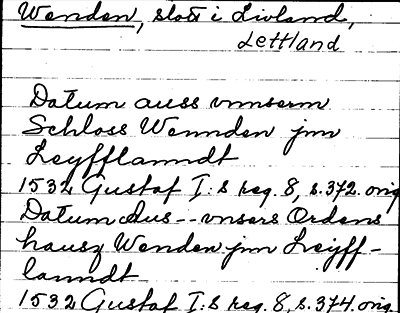 Wenden, slott i Livland,
Lettland
Datum auss vnnserm
Schloss Wennden jnn
Leyfflanndt
1532 Gustaf I:s reg. 8, s. 372. orig
Datum Aus -- vnsers Ordens
hausz Wenden jnn Leyff-
lanndt
1532 Gustaf I:s reg. 8, s. 374. orig.